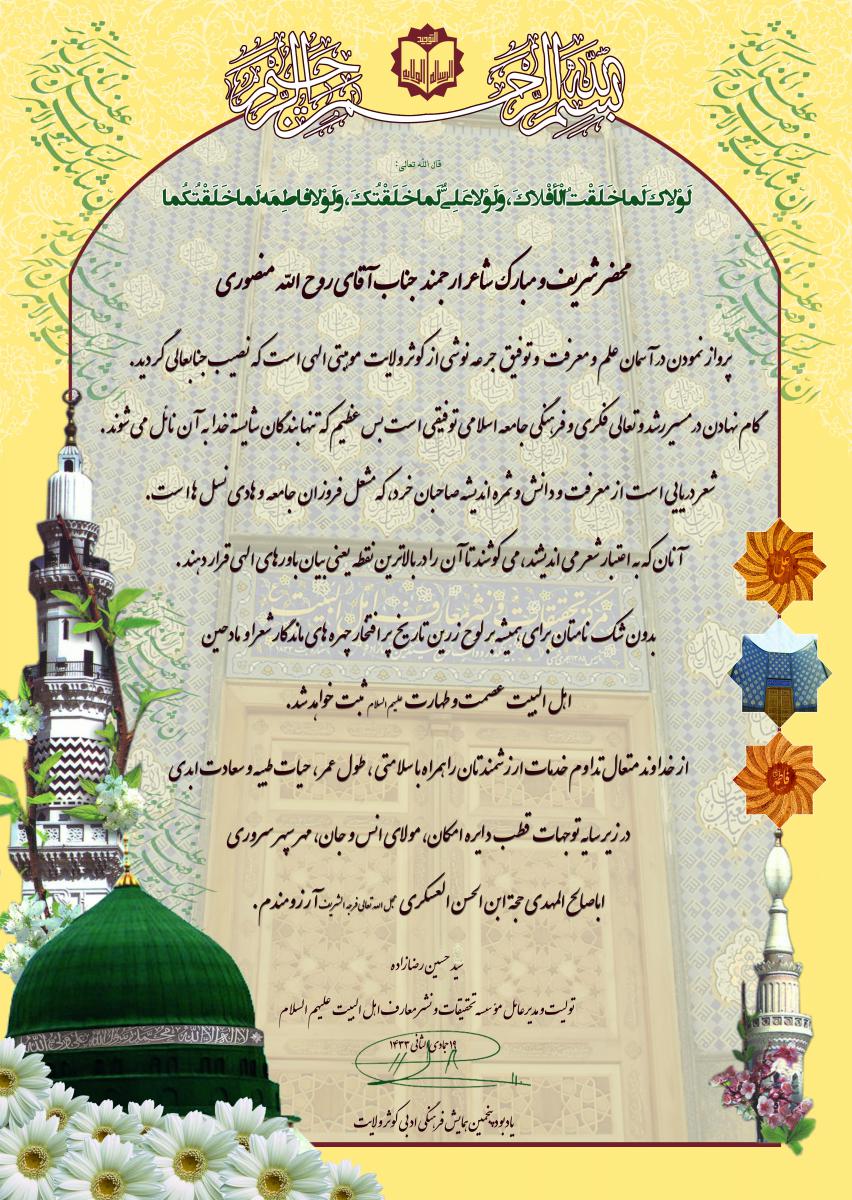 بسم الله الرحمن الرحیم
التوحید
الرسالة الولایة
قال الله تعالی:
لَوْلاکَ لَما خَلَقْتُ الْأَفْلاکَ، وَ لَوْلا عَلِیٌّ لَما خَلَقْتُکَ، وَ لَوْلا فاطِمَه لَما خَلَقْتُکُما
محضر شریف و مبارک شاعر ارجمند جناب آقای روح الله منصوری
پرواز نمودن در آسمان علم و معرفت و توفیق جرعه نوشی از کوثر ولایت موهبتی الهی است که نصیب جنابعالی گردید.
گام نهادن در مسیر رشد و تعالی فکری و فرهنگی جامعه اسلامی توفیقی است بس عظیم که تنها بندگان شایسته خدا به آن نائل می شوند.
شعر دریایی است از معرفت و دانش و ثمره اندیشه صاحبان خرد، که مشعل فروزان جامعه و هادی نسل ها است.
آنان که به اعتبار شعر می اندیشند، می کوشند تا آن را در بالاترین نقطه یعنی بیان باورهای الهی قرار دهند.
بدون شک نامتان برای همیشه بر لوح زرین تاریخ پر افتخار چهره های ماندگار شعرا و مادحین
اهل البیت عصمت و طهارت علیهم السلام ثبت خواهد شد.
از خداوند متعال تداوم خدمات ارزشمندتان را همراه با سلامتی، طول عمر، حیات طیبه و سعادت ابدی
در زیر سایه توجهات قطب دایره امکان، مولای انس و جان، مهر سپهر سروری
اباصالح المهدی حجة ابن الحسن العسکری عجل الله تعالی فرجه الشریف آرزومندم.
سید حسین رضازاده
تولیت و مدیر عامل مؤسسه تحقیقات و نشر معارف اهل البیت علیهم السلام
۱۹ جمادی الثانی ۱۴۳۳
یادبود پنجمین همایش فرهنگی ادبی کوثر ولایت
علی
فاطمة
مرکز تحقیقات و نشر معارف اهل البیت